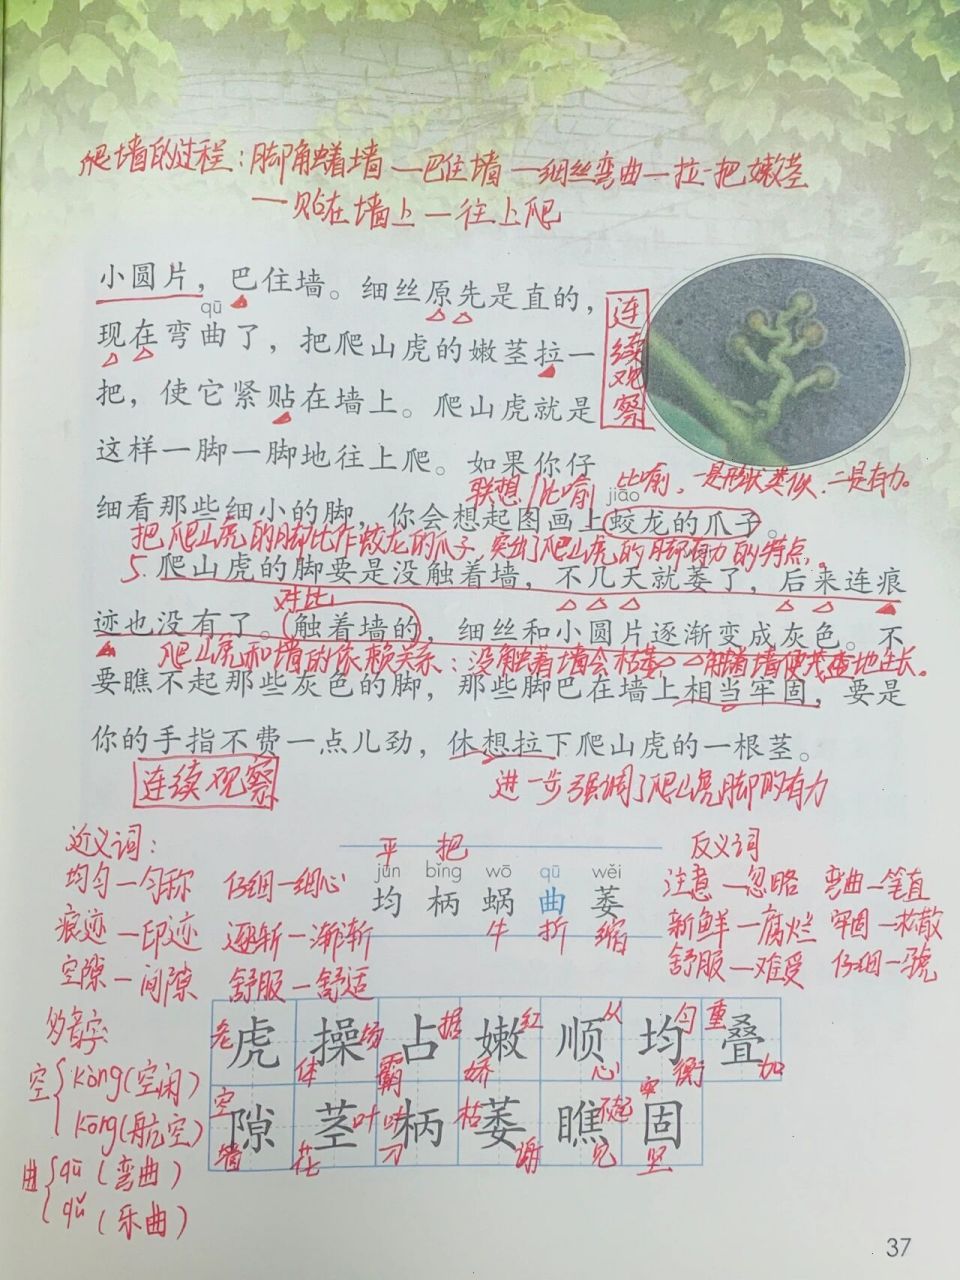 爬墙的过程：脚触着墙—巴住墙—细丝弯曲—拉一把嫩茎
—贴在墙上—往上爬
小圆片，巴住墙。细丝原先是直的，
qū
现在弯曲了，把爬山虎的嫩茎拉一
把，使它紧贴在墙上。爬山虎就是
连续观察
这样一脚一脚地往上爬。如果你仔
联想/比喻 比喻，一是形状类似，二是有力。
jiāo
细看那些细小的脚，你会想起图画上蛟龙的爪子。
把爬山虎的脚比作蛟龙的爪子，突出了爬山虎的脚有力的特点。
5.爬山虎的脚要是没触着墙，不几天就萎了，后来连痕
对比
迹也没有了。触着墙的，细丝和小圆片逐渐变成灰色。不
爬山虎和墙的依赖关系：没触着墙会枯萎，触着墙便茂盛地生长。
要瞧不起那些灰色的脚，那些脚巴在墙上相当牢固，要是
你的手指不费一点儿劲，休想拉下爬山虎的一根茎。
连续观察
进一步强调了爬山虎脚的有力
近义词：
均匀—匀称 仔细—细心
痕迹—印迹 逐渐—渐渐
空隙—间隙 舒服—舒适
平 把
jūn bǐng wō qū wěi
均 柄 蜗 曲 萎
牛 折 缩
反义词
注意—忽略 弯曲—笔直
新鲜—腐烂 牢固—松散
舒服—难受 仔细—
多音字
空 kòng（空闲）
kōng（航空）
曲 qū（弯曲）
qǔ（乐曲）
老 场 据 红 从 匀 重
虎 操 占 嫩 顺 均 叠
体 霸 娇 心 衡 加
空 叶 枯 不起 牢
隙 茎 柄 萎 瞧 固
墙 花 刀 谢 见 坚
37